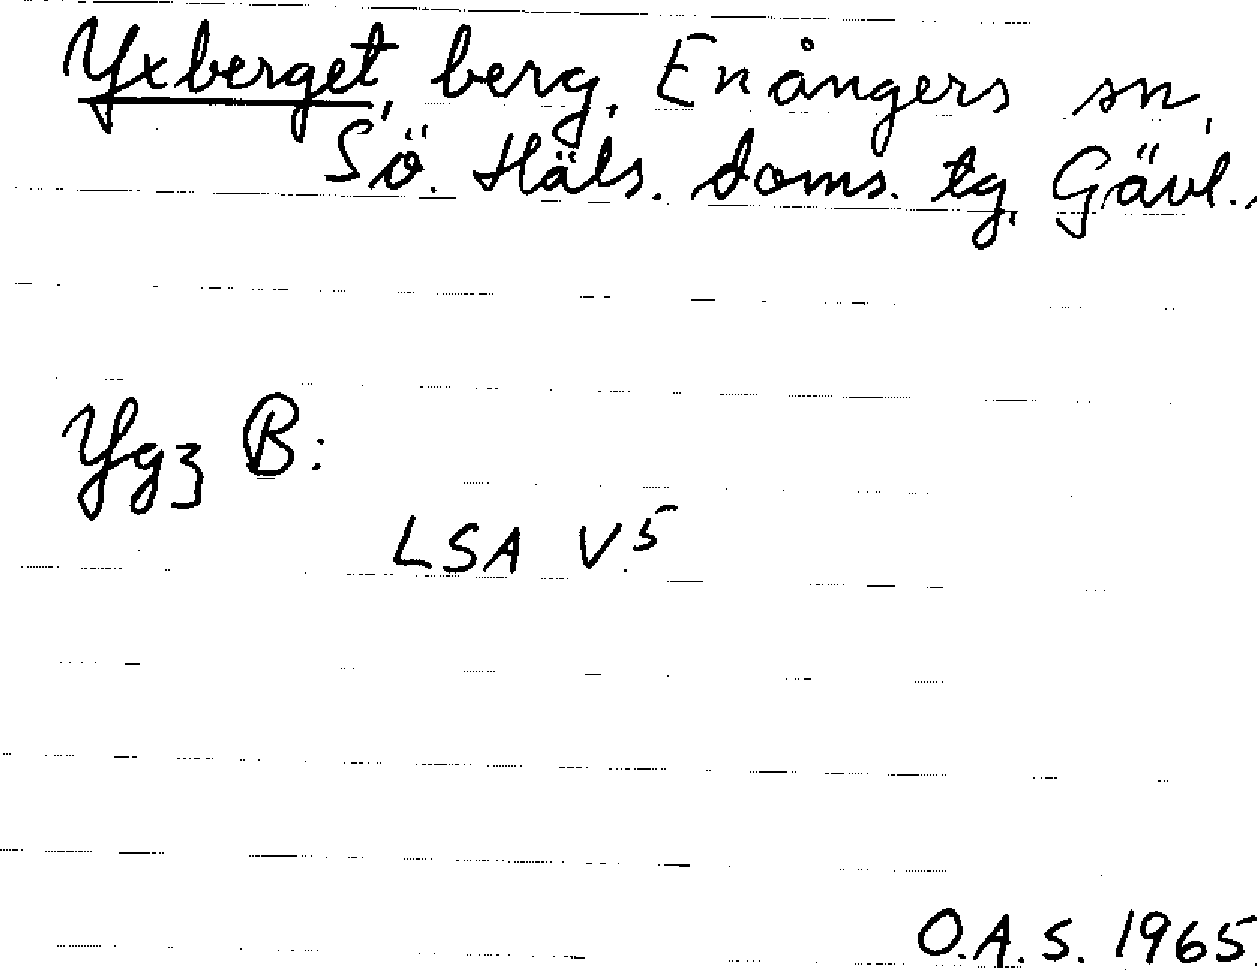 Yxberget, berg, Enångers sn,
Sö. Häls. doms. tg, Gävl..
Ygz B:
LSA V.5
O.A.S. 1965.